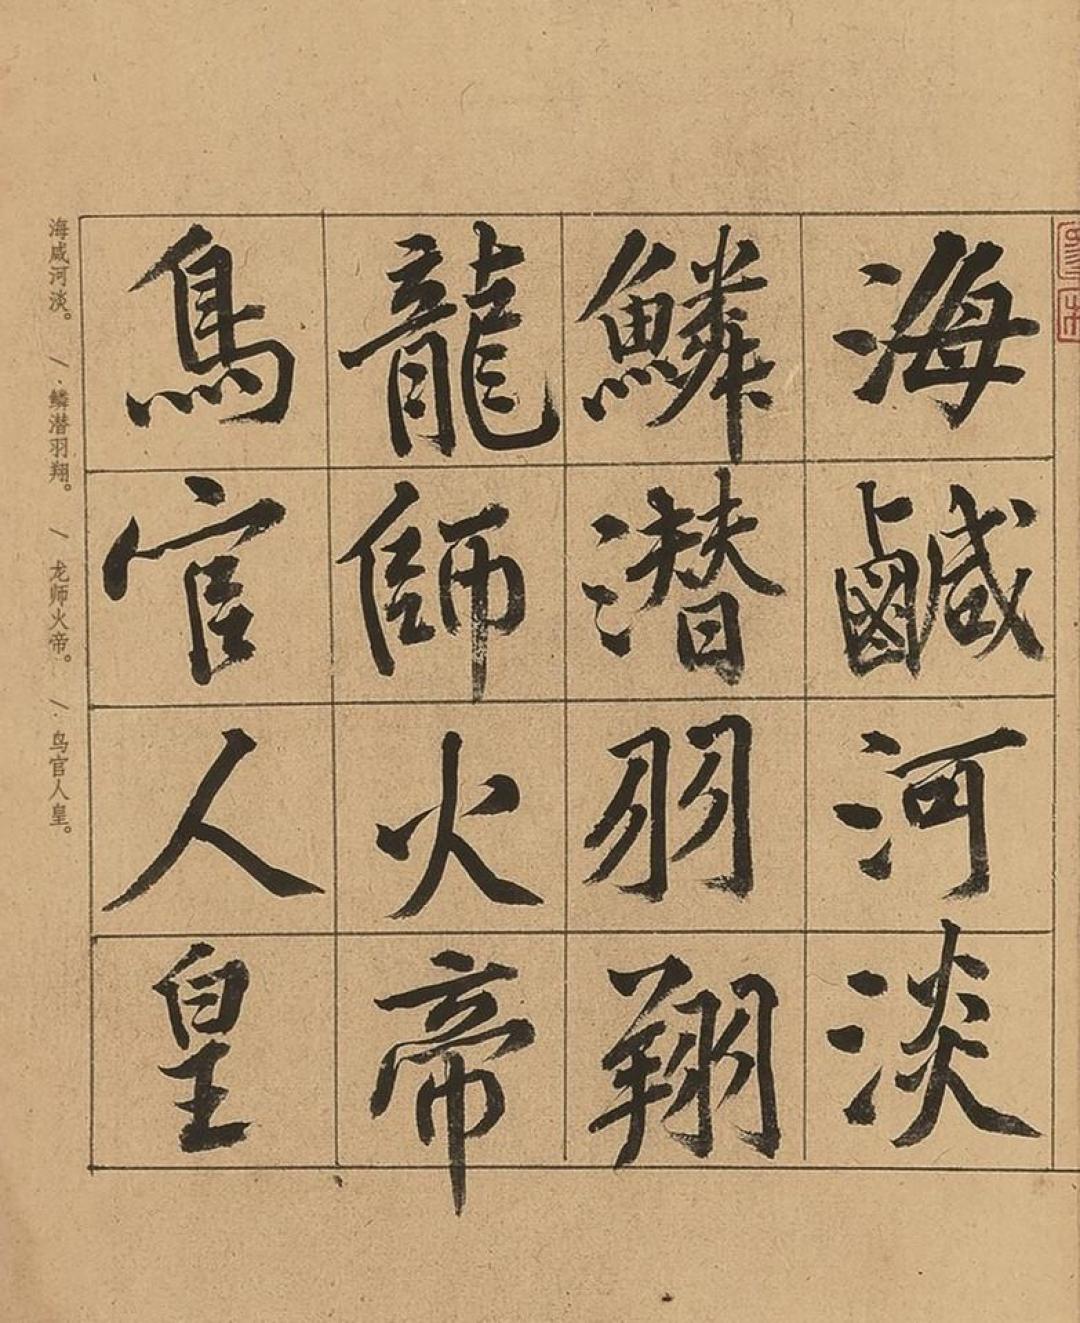 海鹹河淡
鱗潜羽翔
龍師火帝
鳥官人皇
海咸河淡。/·鳞潜羽翔。/龙师火帝。/·鸟官人皇。